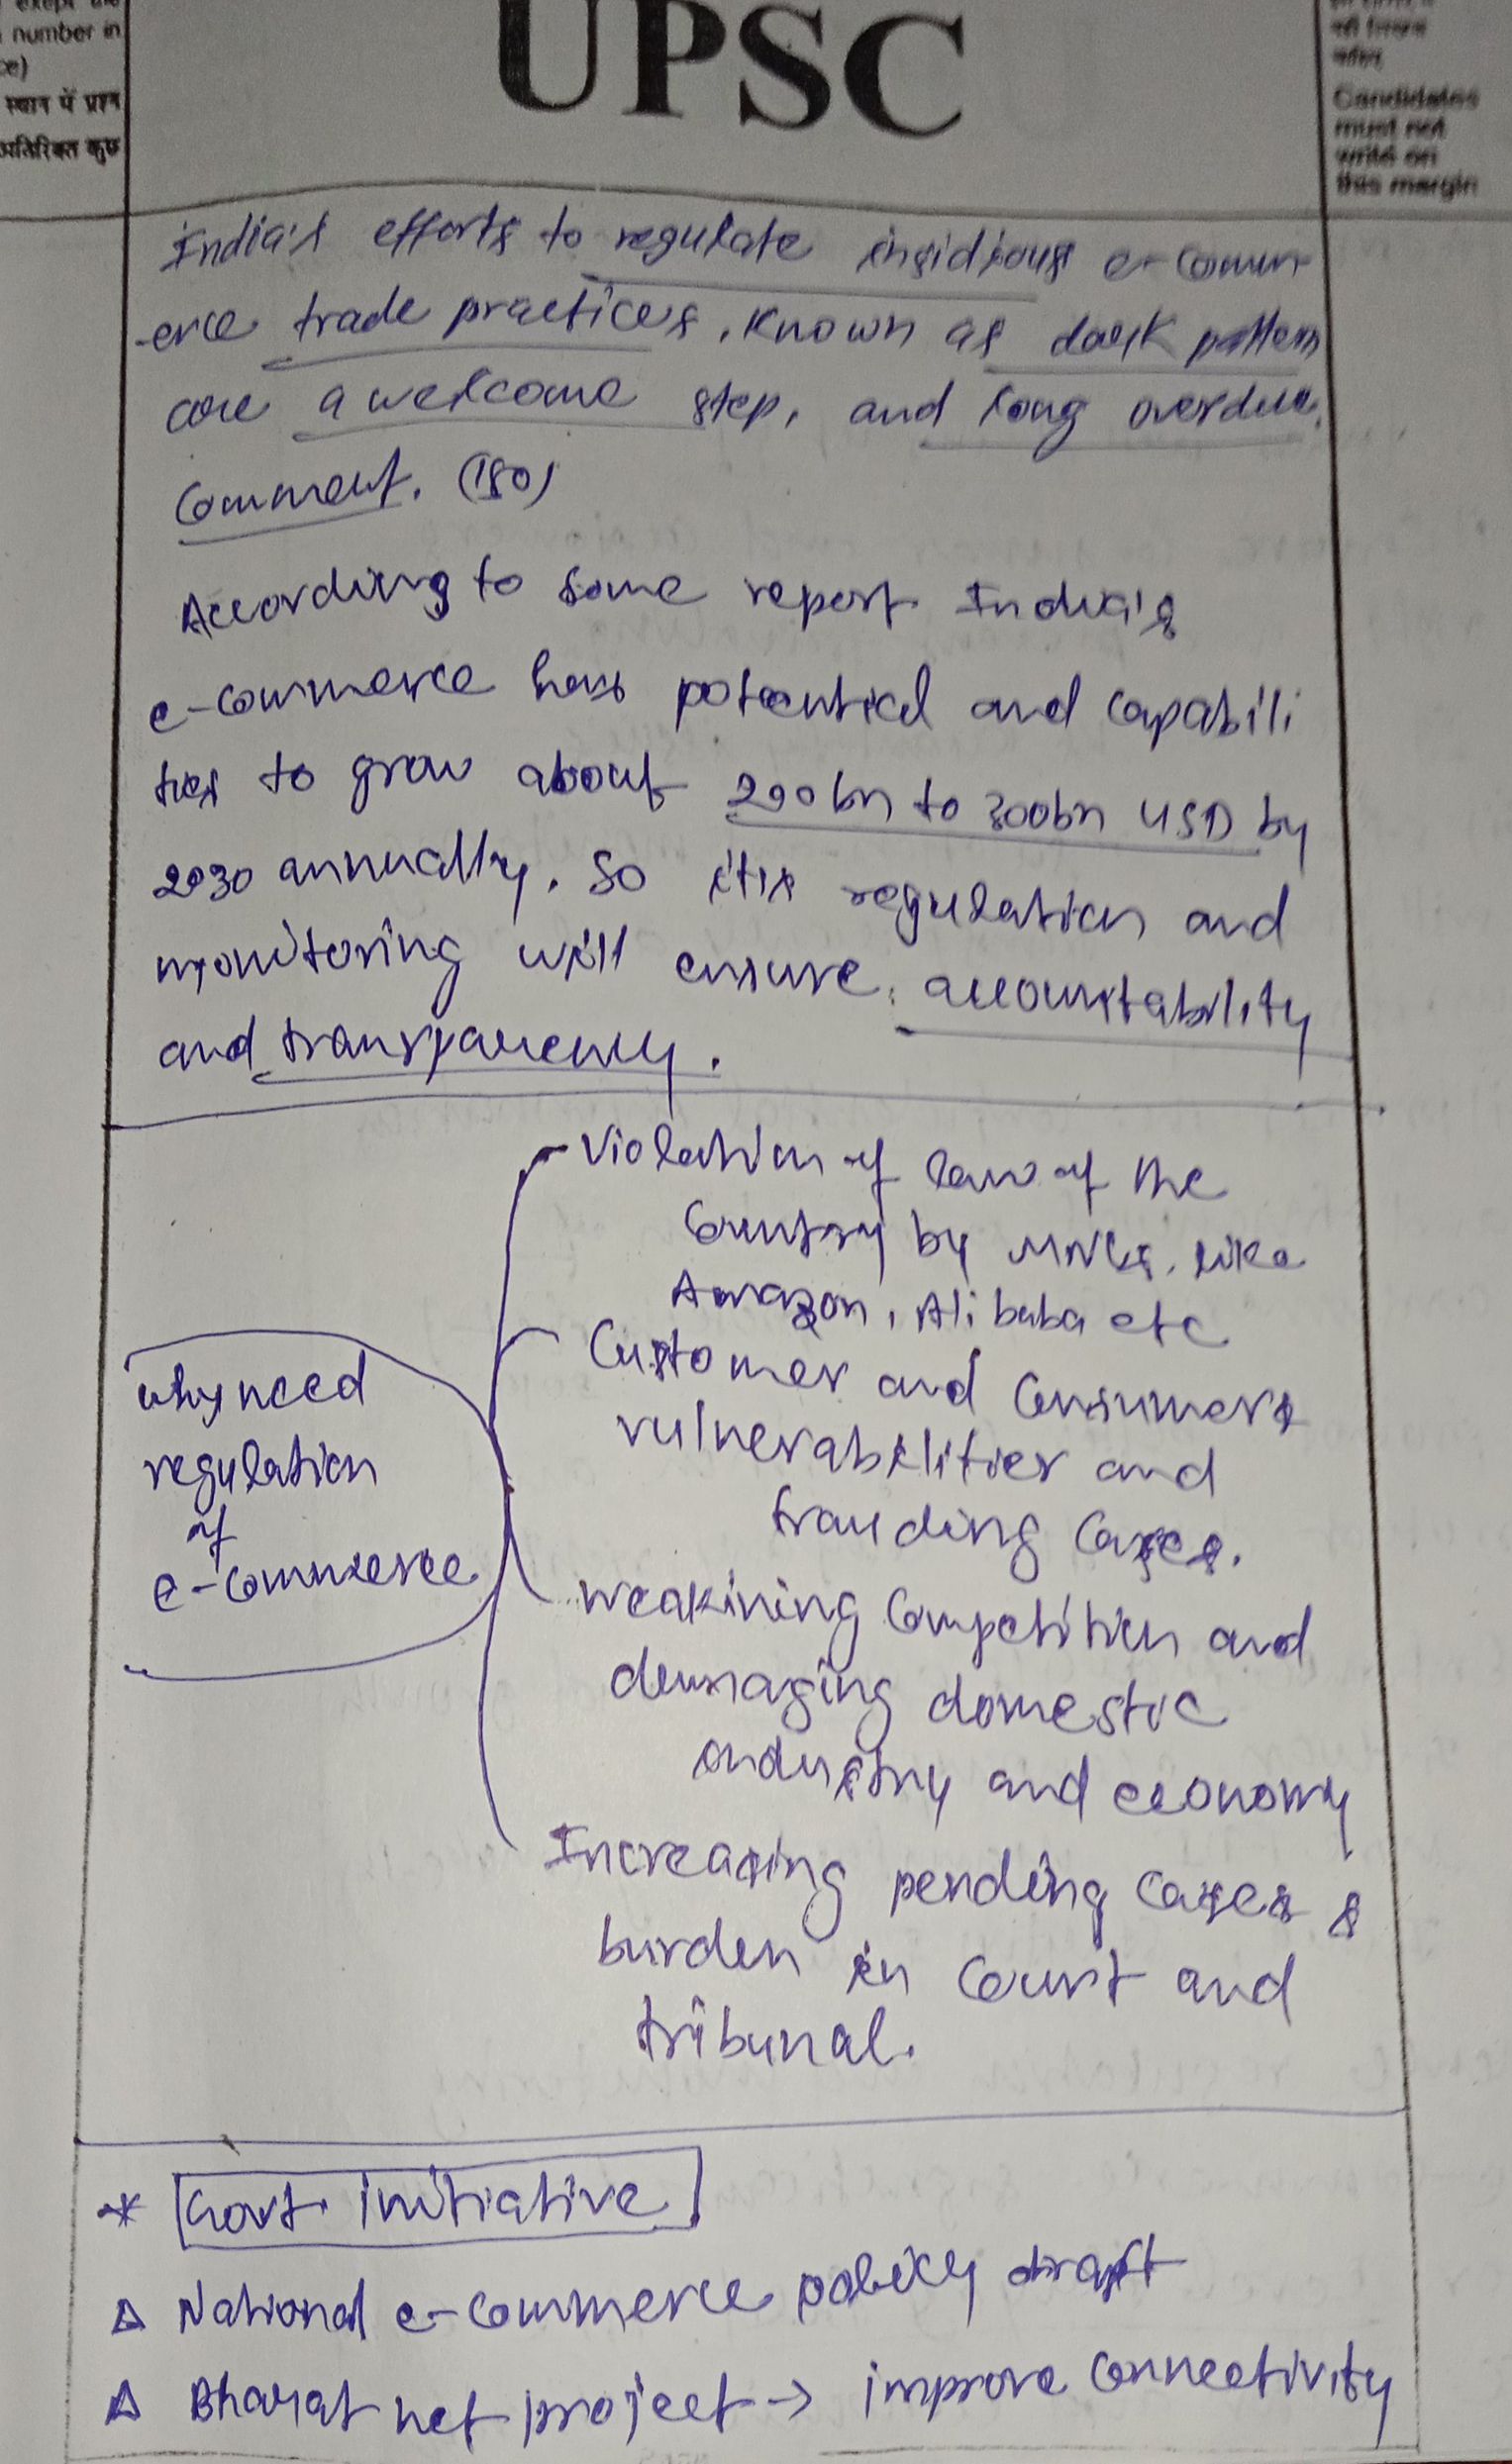 number in
ce)
स्थान में प्रश्न
अतिरिक्त कुछ
UPSC
Candidates
must not
write on
this margin
India's efforts to regulate insidious e-comm
-erce trade practices, known as dark pattern
are a welcome step, and long overdue.
Comment. (150)
According to some report India's
e-commerce has potential and capabili
ties to grow about 290bn to 300bn USD by
2030 annually. So its regulation and
monitoring will ensure accountability
and transparency.
Violation of law of the
Country by MNCs. like
Amazon, Alibaba etc
why need
regulation
of
e-commerce
Customer and Consumers
vulnerabilities and
frauding cases.
weakining Competition and
demaging domestic
industry and economy
Increasing pending cases &
burden in Court and
tribunal.
* Govt. initiative
∆ National e-commerce policy draft
∆ Bharat net project → improve connectivity